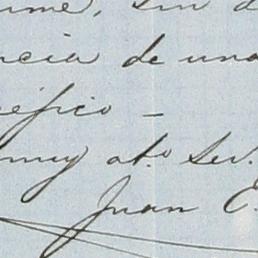 sin
ncia de una
éfico —
muy ato. Serv.
Juan C.